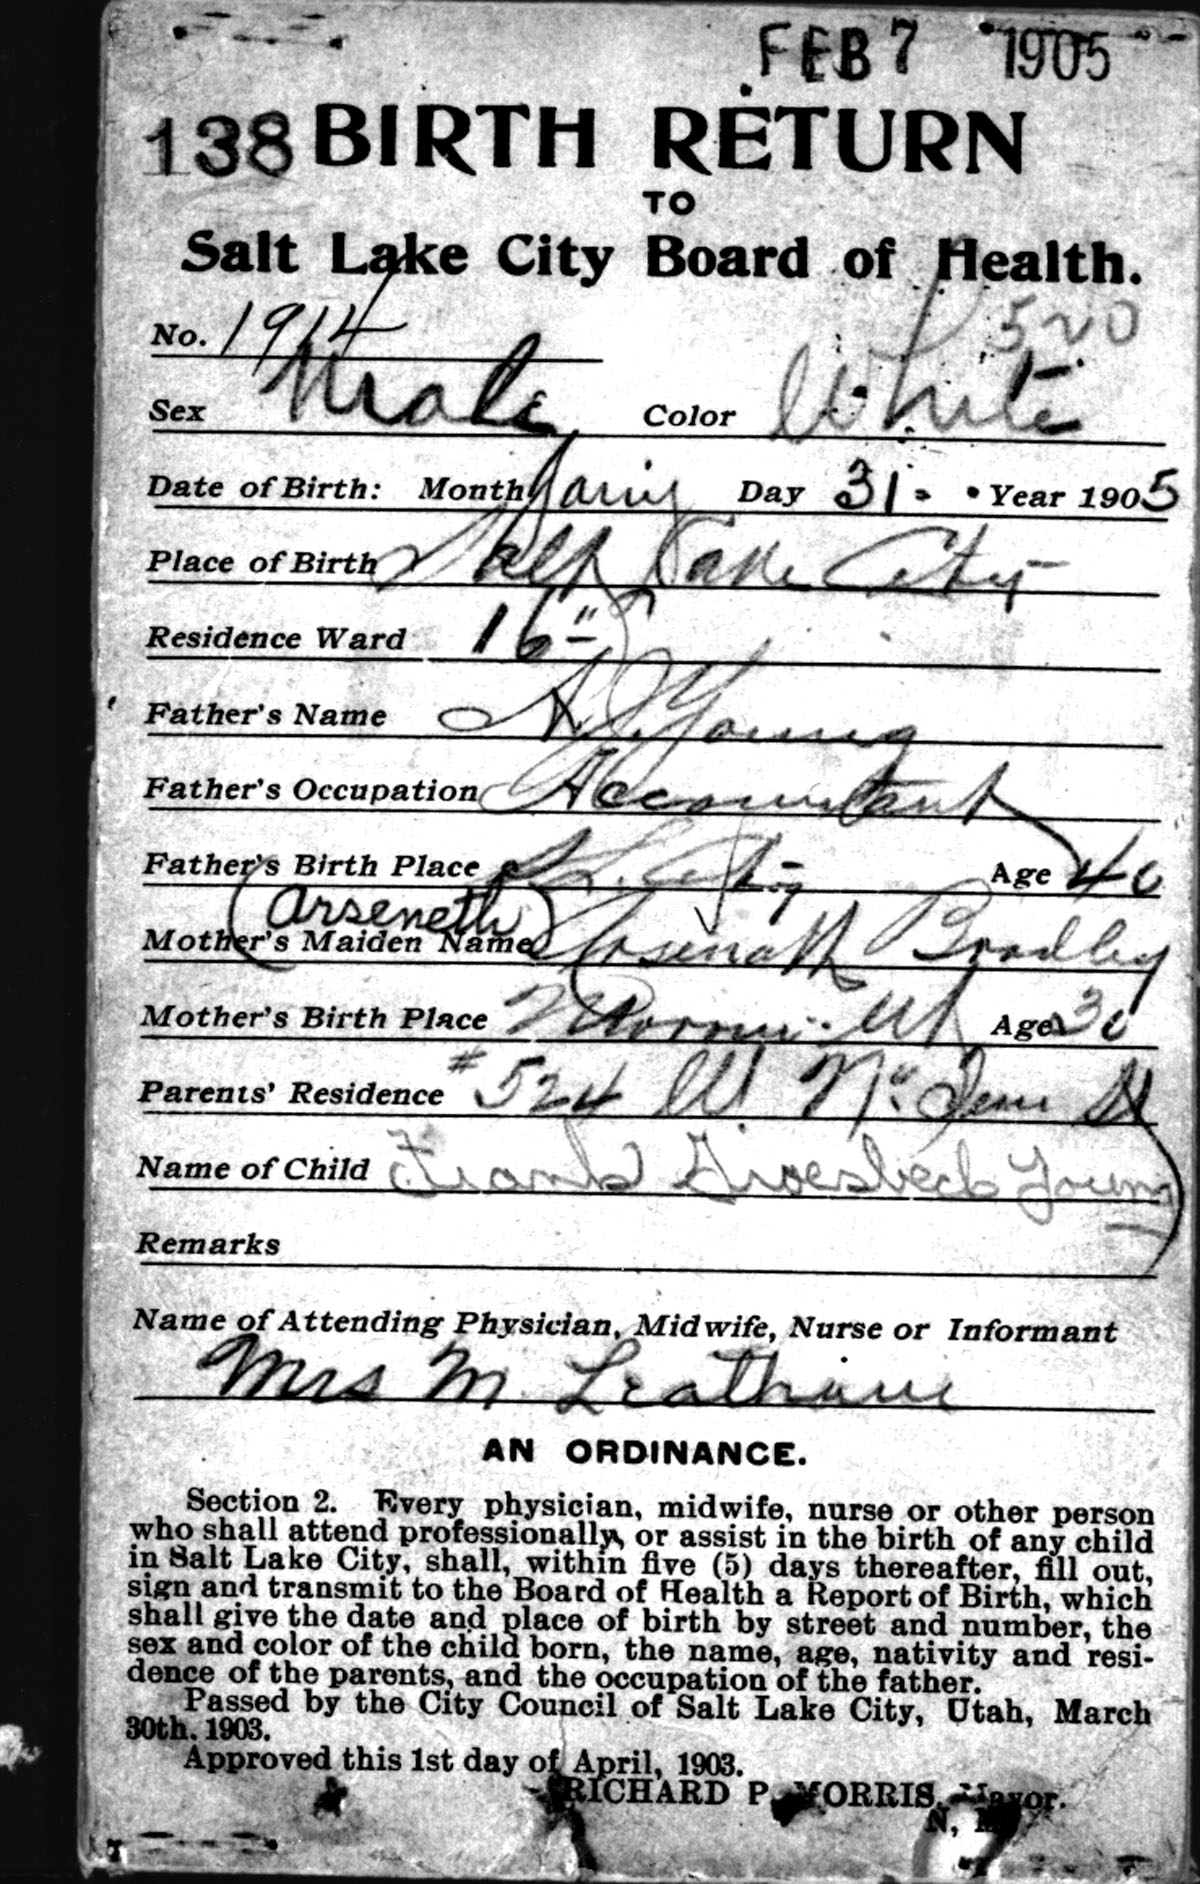 FEB 7 1905
138 BIRTH RETURN
TO
Salt Lake City Board of Health.
No. 1914 520
Sex Male Color White
Date of Birth: Month Jany Day 31. Year 1905
Place of Birth Salt Lake City
Residence Ward 16"
Father's Name A. S. Young
Father's Occupation Accountant
Father's Birth Place S. L. City Age 40
(Arseneth)
Mother's Maiden Name Arsenath Bradley
Mother's Birth Place Ut Age 30
Parents' Residence #524 W No. Tem St
Name of Child Frank Groesbeck Young
Remarks
Name of Attending Physician, Midwife, Nurse or Informant
Mrs M
AN ORDINANCE.
Section 2. Every physician, midwife, nurse or other person
who shall attend professionally, or assist in the birth of any child
in Salt Lake City, shall, within five (5) days thereafter, fill out,
sign and transmit to the Board of Health a Report of Birth, which
shall give the date and place of birth by street and number, the
sex and color of the child born, the name, age, nativity and resi-
dence of the parents, and the occupation of the father.
Passed by the City Council of Salt Lake City, Utah, March
30th, 1903.
Approved this 1st day of April, 1903.
RICHARD P. MORRIS, Mayor.